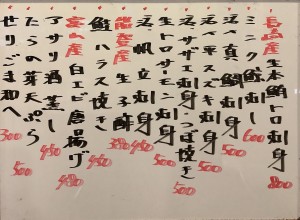 長崎産 生本鮪トロ刺身 800
ミニいくら丼 600
活〆真鯛刺身 500
活〆平スズキ刺身 500
活サザエ刺身(つぼ焼き) 500
生トロサーモン刺身 500
活帆立刺身 500
能登産 生子酢 380
鮭ハラス焼き 480
富山産 白エビ唐揚げ 480
アサリ酒蒸し 480
たらの芽天ぷら 500
せりごま和へ 300